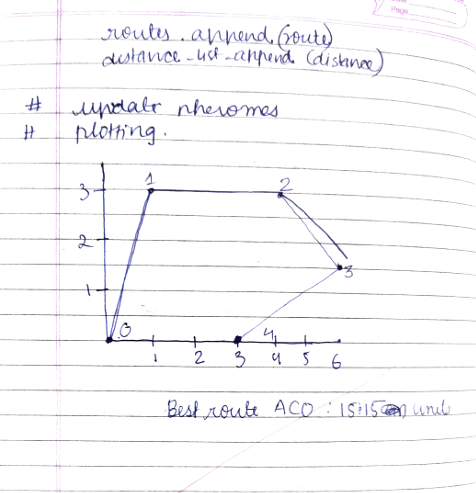 Page
routes.append(route)
distance-list-append(distance)
# update pheromes
# plotting.
3
1
2
2
3
1
0
4
1 2 3 4 5 6
Best route ACO : 15.15 unit